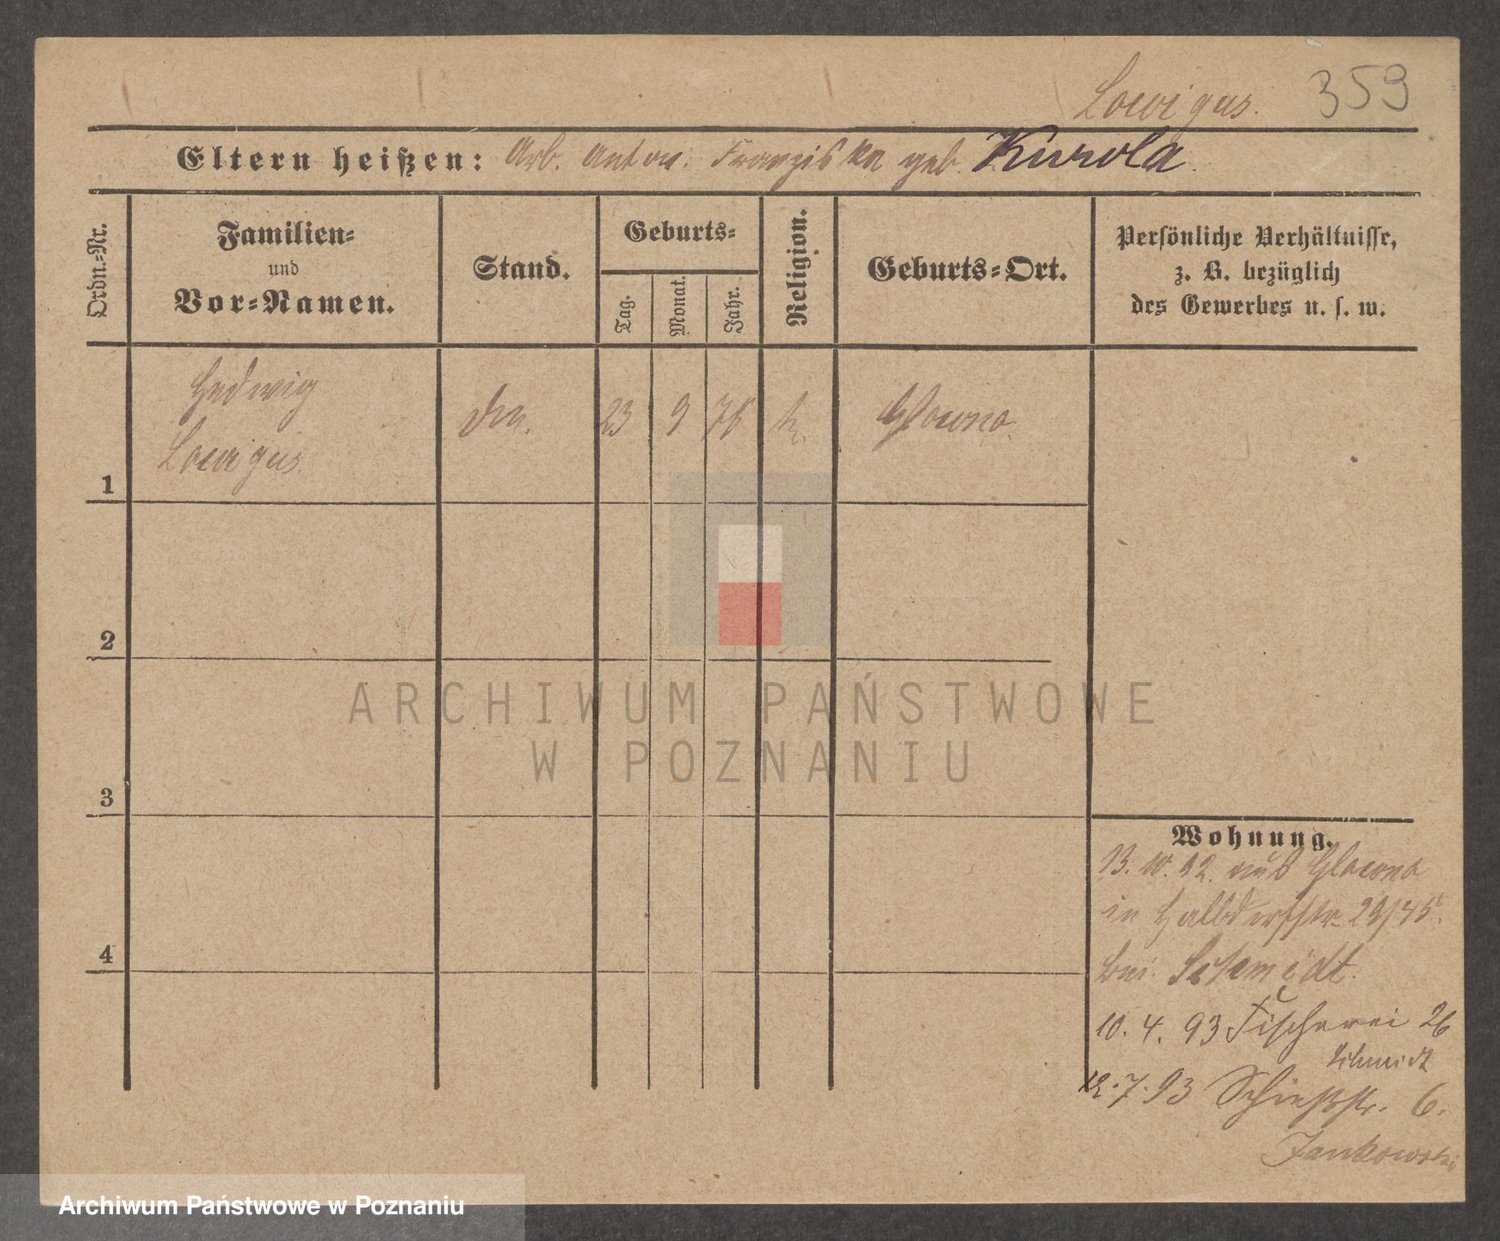 Lowigus. 359
Eltern heißen: Arb. Anton. Franziska geb. Kurola.
Ordn.-Nr.
Familien-
und
Vor-Namen.
Stand.
Geburts-
Tag.
Monat.
Jahr.
Religion.
Geburts-Ort.
Persönliche Verhältnisse,
z. B. bezüglich
des Gewerbes u. s. w.
Hedwig
Lowigus.
23 9 75 k. Glowno.
1
2
3
4
ARCHIWUM PAŃSTWOWE
W POZNANIU
Wohnung.
13. 10. 92. aus Glowno
in Halbdorfstr. 29/45.
bei Schmidt.
10. 4. 93 Fischerei 26
Schmidt
12. 7. 93 Schießstr. 6.
Jankowski
Archiwum Państwowe w Poznaniu